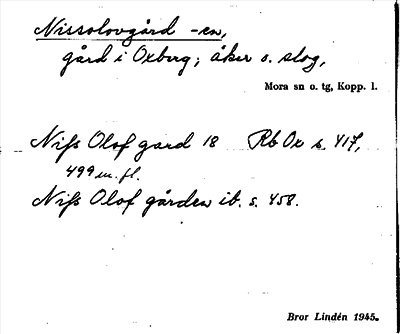 Nissolovgård -en,
gård i Oxberg; åker o. slog,
Mora sn o. tg, Kopp. l.
Niſs Olof gard 18 Rb Ox s. 417,
499 m. fl.
Niſs Olof gården ib. s. 458.
Bror Lindén 1945.